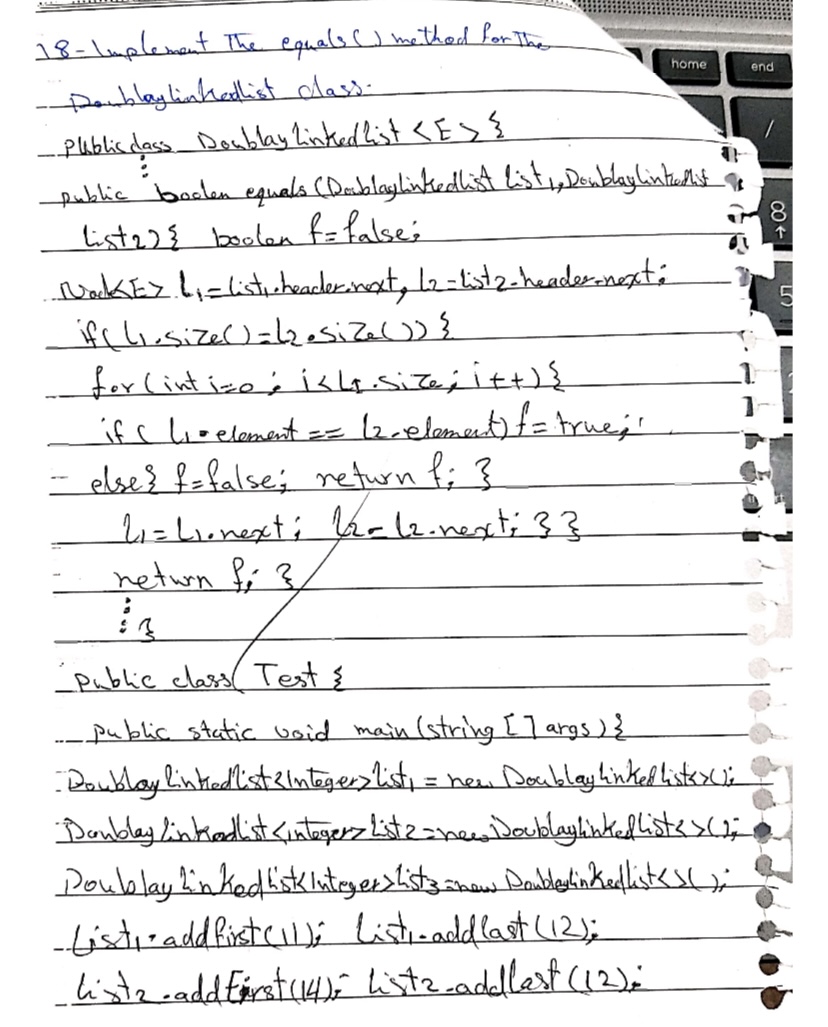 18-Implement The equals() method for The
DoublayLinkedlist class.
public class DoublayLinkedList <E> {
:
public boolen equals (DoublayLinkedlist list1, DoublayLinkedlist
list2) { boolen f=false;
Nod<E> L1=list1.header.next, L2=list2.header.next;
if(L1.size()=L2.size()) {
for (int i=0 ; i<L1.size; i++) {
if ( L1.element == L2.element) f=true;
else} f=false; return f; }
L1=L1.next; L2=L2.next; } }
return f; }
: }
public class Test {
public static void main(string [] args) {
Doublaylinkedlist<Integer>list1 = new DoublayLinkedlist<>();
Doublaylinkedlist<integer>list2=new Doublaylinkedlist<>();
Doublaylinkedlist<Integer>list3=new Doublaylinkedlist<>();
list1.addfirst(11); list1.addlast(12);
list2.addFirst(14); list2.addlast(12);
home
end
/
8
↑
5